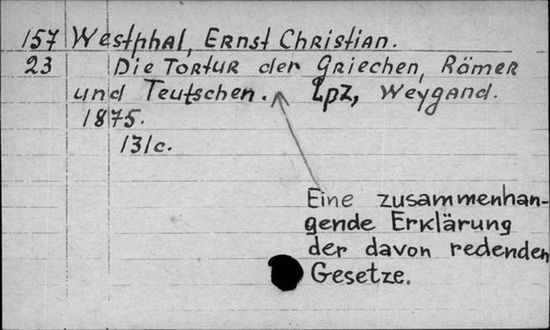 157 Westphal, Ernst Christian.
23 Die Tortur der Griechen, Römer
und Teutschen. Lpz, Weygand.
1875.
131c.
Eine zusammenhan-
gende Erklärung
der davon redenden
Gesetze.